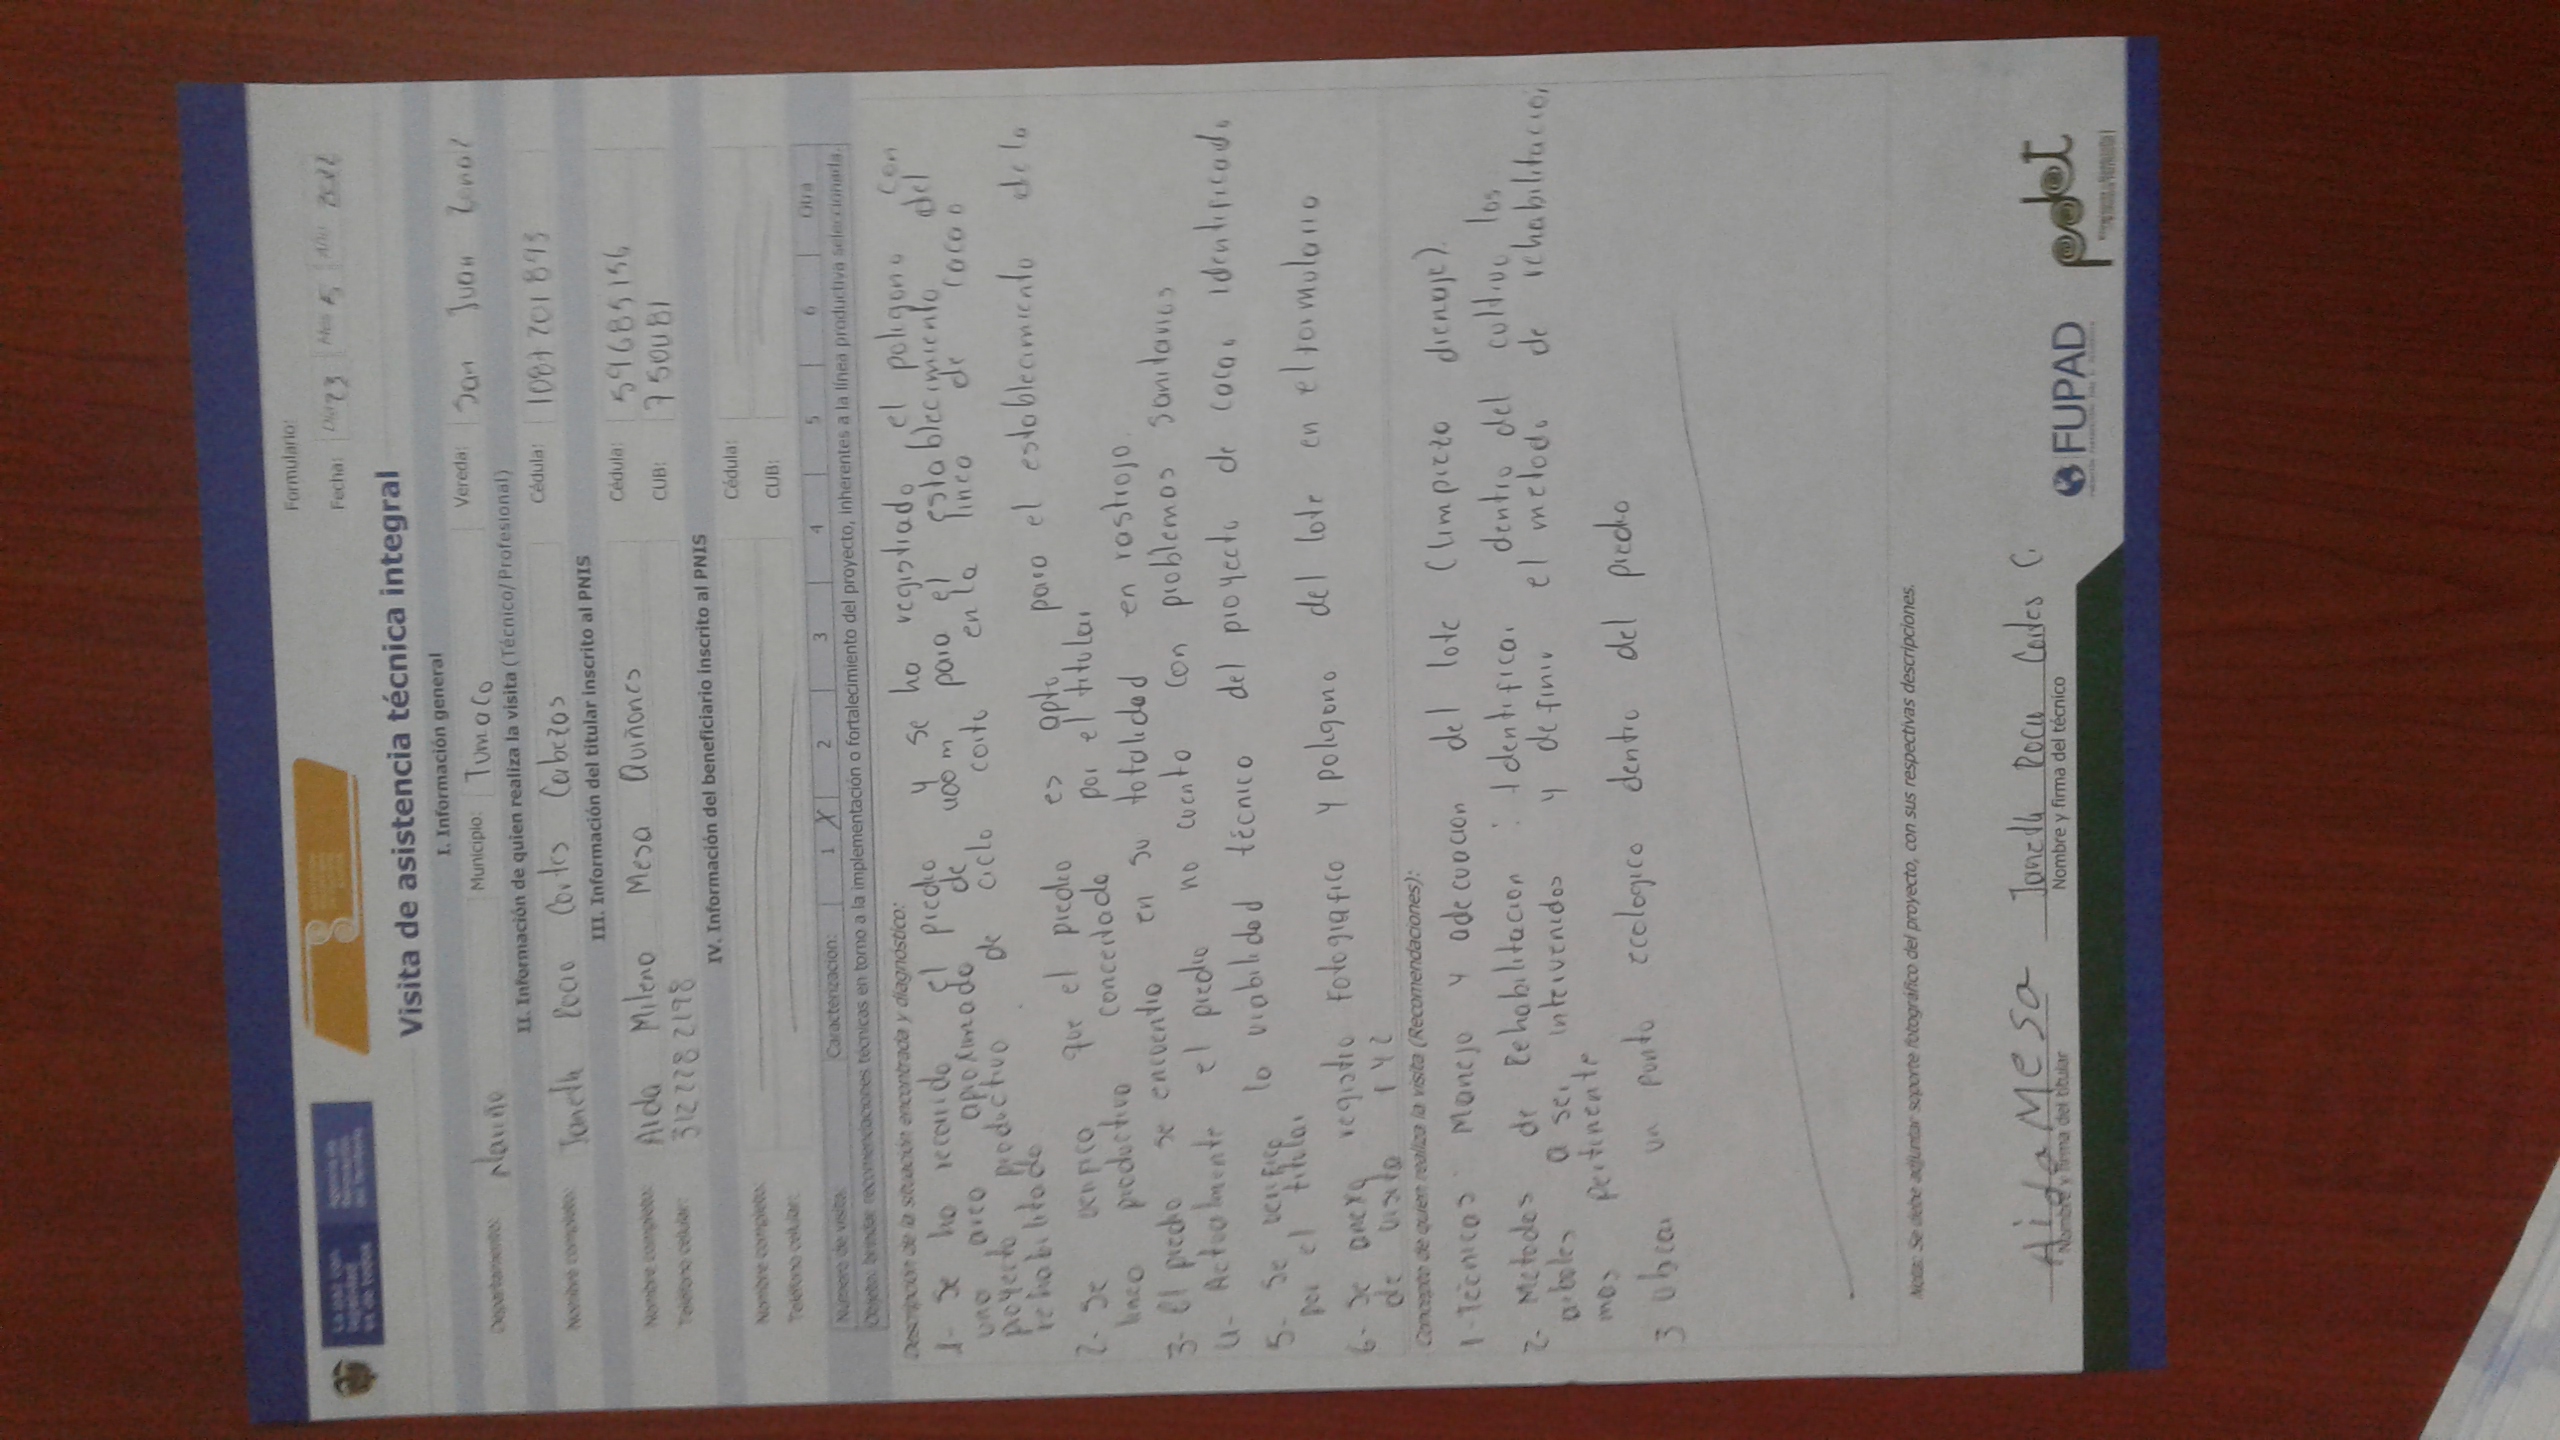 Formulario:
Fecha: Día 23 Mes 5 Año 2022
Visita de asistencia técnica integral
I. Información general
Departamento: Nariño Municipio: Tumaco Vereda: San Juan
II. Información de quien realiza la visita (Técnico/Profesional)
Nombre completo: Janeth Rocio Cortes Cabezas Cédula: 1087201893
III. Información del titular inscrito al PNIS
Nombre completo: Aida Milena Mesa Quiñones Cédula: 59685156
Teléfono celular: 312 228 2198 CUB:
IV. Información del beneficiario inscrito al PNIS
Nombre completo: Cédula:
Teléfono celular: CUB:
Número de visita: Caracterización: 1 X 2 3 4 5 6 Otra
Objeto: brindar recomendaciones técnicas en torno a la implementación o fortalecimiento del proyecto, inherentes a la línea productiva seleccionada.
Descripción de la situación encontrada y diagnóstico:
1- Se ha recorrido el predio y se ha registrado el poligono con
una area aproximada de para el establecimiento del
proyecto productivo de ciclo corto en la linea de cacao
rehabilitado.
2- Se verifico que el predio es apto para el establecimiento de la
linea productiva concertada por el titular
3- El predio se encuentra en su totalidad en rastrojo.
4- Actualmente el predio no cuenta con problemas sanitarios
5- Se verifico la viabilidad técnico del proyecto de cacao identificado
por el titular
6- Se anexa registro fotografico y poligono del lote en el formulario
de visita 1 y 2
Concepto de quien realiza la visita (Recomendaciones):
1- Técnicas: Manejo y adecuacion del lote (limpieza drenaje).
2- Metodos de Rehabilitacion: Identificar dentro del cultivo los
arboles a ser intervenidos y definir el metodo de rehabilitacion
mas pertinente
3 Ubicar un punto ecologico dentro del predio
Nota: Se debe adjuntar soporte fotográfico del proyecto, con sus respectivas descripciones.
Aida Mesa Janeth Rocio Cortes C.
Nombre y firma del titular Nombre y firma del técnico
FUPAD pdet